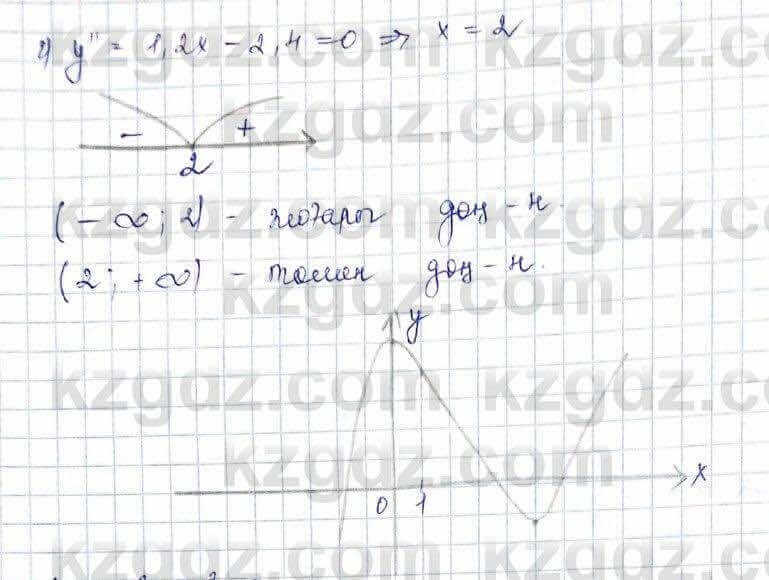 y'' = 1,2x - 2,4 = 0 ⇒ x = 2
- +
2
(-∞; 2) - жоғары дөң-н.
(2; +∞) - төмен дөң-н.
y
x
0 1
kzgdz.com